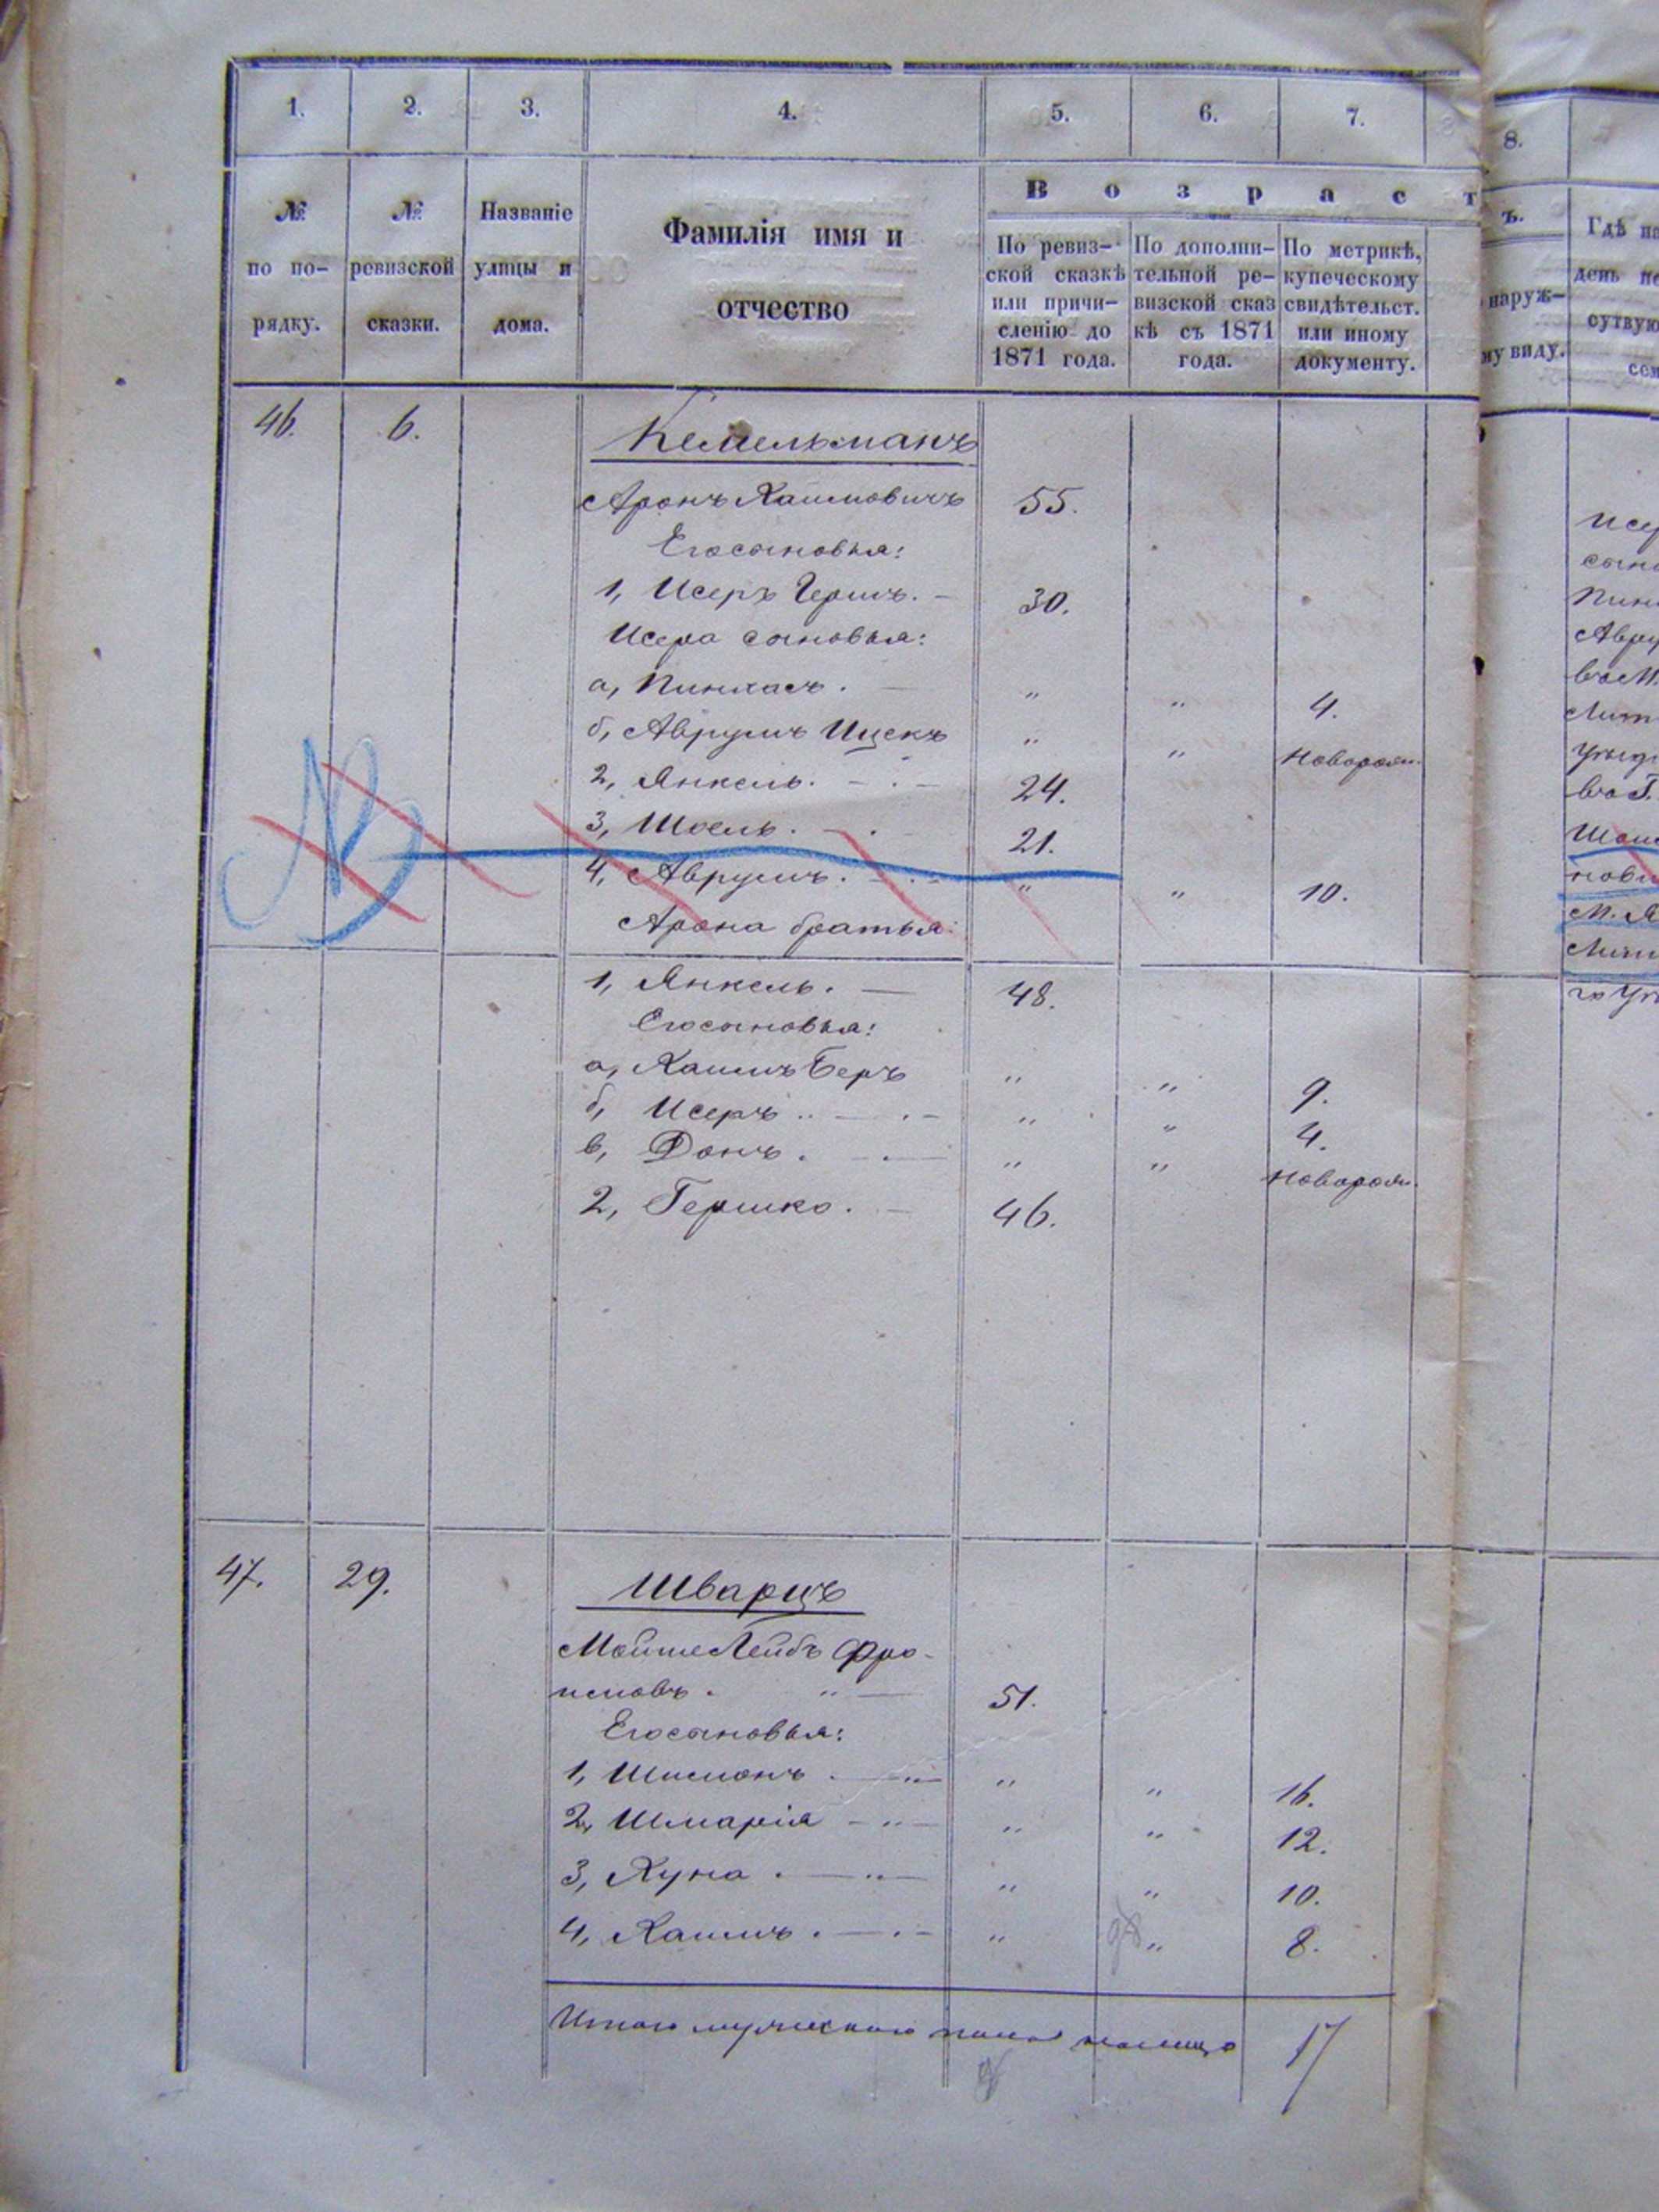 1. 2. 3. 4. 5. 6. 7. 8.
№ по по-рядку.
№ ревизской сказки.
Названіе улицы и дома.
Фамилія имя и отчество
В о з р а с т ъ.
По ревиз-ской сказкѣ или причи-сленію до 1871 года.
По дополни-тельной ре-визской сказ кѣ съ 1871 года.
По метрикѣ, купеческому свидѣтельст. или иному документу.
наруж-
му виду.
Гдѣ на
день не
сутвую
сем
46. 6. Кемельманъ
Аронъ Хаимовичъ 55.
Его сыновья:
1, Исеръ Гершъ. - 30.
Исера сыновья:
а, Пинхасъ. — " " 4.
б, Аврумъ Ицекъ " " Новорожд.
2, Янкель. - . - 24.
3, Шоель. - . 21.
4, Аврумъ. - . - " " 10.
Арона братья:
1, Янкель. — 48.
Его сыновья:
а, Хаимъ Беръ " " 9.
б, Исеръ .. — . - " " 4.
в, Донъ. - . — " " Новорожд.
2, Гершко. - 46.
47. 29. Шварцъ
Мойше Лейбъ Фро-
имовъ. " — 51.
Его сыновья:
1, Шимонъ . — " — " " 16.
2, Шмарія - " — " " 12.
3, Хуна . — " — " " 10.
4, Хаимъ . — . - " " 8.
Итого мужескаго пола налицо 17
Исер
сыно
Пинх
Авру
въ М.
Лити
Уѣзд
въ Г.
нови
М. Я
Лити
го Уѣ